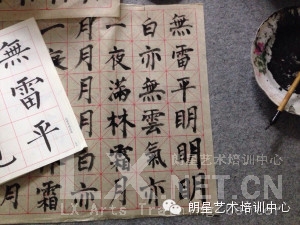 無雷平明明明
白亦無雲氣亦
一夜滿林霜月
月月月月白亦
霜
月
無雷平
朗星艺术培训中心
NET.CN
LX Arts Training Center
朗星艺术培训中心